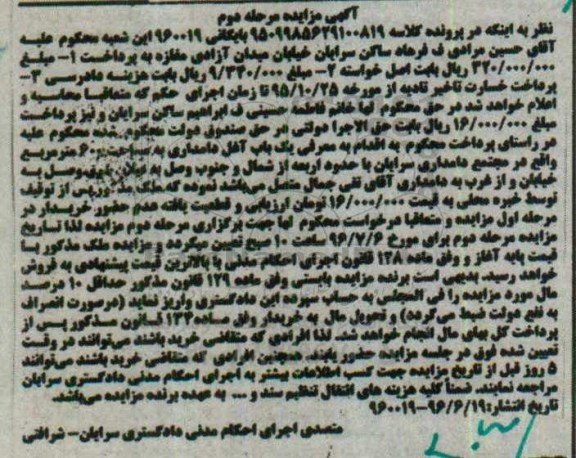 آگهی مزایده مرحله دوم
نظر به اینکه در پرونده کلاسه ۹۵۰۹۹۸۵۶۲۹۱۰۰۸۱۹ بایگانی ۹۶۰۰۱۹ این شعبه محکوم علیه
آقای حسین مرادی ف فرهاد ساکن سرایان خیابان میدان آزادی مغازه به پرداخت ۱- مبلغ
۳۲۰/۰۰۰/۰۰۰ ریال بابت اصل خواسته ۲- مبلغ ۹/۳۲۰/۰۰۰ ریال بابت هزینه دادرسی ۳-
پرداخت خسارت تاخیر تادیه از مورخه ۹۵/۱۰/۲۵ تا زمان اجرای حکم که متعاقبا محاسبه و
اعلام خواهد شد در حق محکوم لها خانم فاطمه حسینی ف ابراهیم ساکن سرایان و نیز پرداخت
مبلغ ۱۶/۰۰۰/۰۰۰ ریال بابت حق الاجرا دولتی در حق صندوق دولت محکوم شده محکوم علیه
در راستای پرداخت محکوم به اقدام به معرفی یک باب آغل دامداری به مساحت ۶۰۰ مترمربع
واقع در مجتمع دامداری سرایان با حدود اربعه از شمال و جنوب وصل به وصل به
خیابان و از غرب به دامداری آقای تقی جمال متصل می‌باشد نموده که ملک مذکور پس از توقیف
توسط خبره محلی به قیمت ۱۶/۰۰۰/۰۰۰ تومان ارزیابی و قطعیت یافته عدم حضور خریدار در
مرحله اول مزایده و متعاقبا درخواست محکوم لها جهت برگزاری مرحله دوم مزایده لذا تاریخ
مزایده مرحله دوم برای مورخ ۹۶/۷/۶ ساعت ۱۰ صبح تعیین میگردد و مزایده ملک مذکور با
قیمت پایه آغاز و وفق ماده ۱۲۸ قانون اجرای احکام مدنی با بالاترین قیمت پیشنهادی به فروش
خواهد رسید. بدیهی است برنده مزایده بایستی وفق ماده ۱۲۹ قانون مذکور حداقل ۱۰ درصد
مال مورد مزایده را فی المجلس به حساب سپرده این دادگستری واریز نماید (درصورت انصراف
به نفع دولت ضبط می‌گردد) و تحویل مال به خریدار وفق ماده ۱۳۴ قانون مذکور پس از
پرداخت کل بهای مال انجام خواهد شد. لذا افرادی که متقاضی خرید باشند می‌توانند در وقت
تعیین شده فوق در جلسه مزایده حضور یابند. همچنین افرادی که متقاضی خرید باشند می‌توانند
۵ روز قبل از تاریخ مزایده جهت کسب اطلاعات بیشتر به اجرای احکام مدنی دادگستری سرایان
مراجعه نمایند. ضمناً کلیه هزینه های انتقال تنظیم سند و ... به عهده برنده مزایده می‌باشد.
تاریخ انتشار: ۹۶/۶/۱۹-۹۶۰۰۱۹
متصدی اجرای احکام مدنی دادگستری سرایان- شرافتی